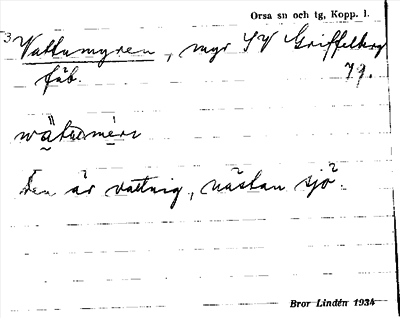 Orsa sn och tg, Kopp. l.
3 Vattumyren, myr SV Griffelberg
fäb. 79.
wätumėrs
Den är vattnig, nästan sjö.
Bror Lindén 1934